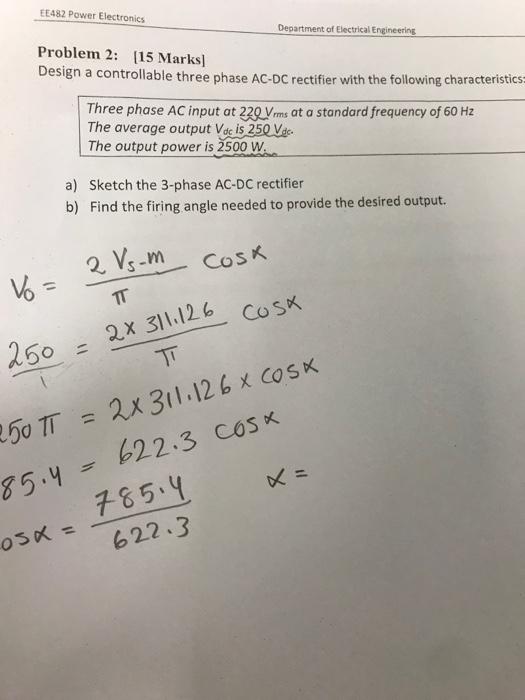 EE482 Power Electronics
Department of Electrical Engineering
Problem 2: [15 Marks]
Design a controllable three phase AC-DC rectifier with the following characteristics:
Three phase AC input at 220 Vrms at a standard frequency of 60 Hz
The average output Vdc is 250 Vdc.
The output power is 2500 W.
a) Sketch the 3-phase AC-DC rectifier
b) Find the firing angle needed to provide the desired output.
Vo = 2 Vs-m / π cosα
250 / 1 = 2x 311.126 / π cosα
250 π = 2x 311.126 x cosα
85.4 = 622.3 cosα
osα = 785.4 / 622.3 α =